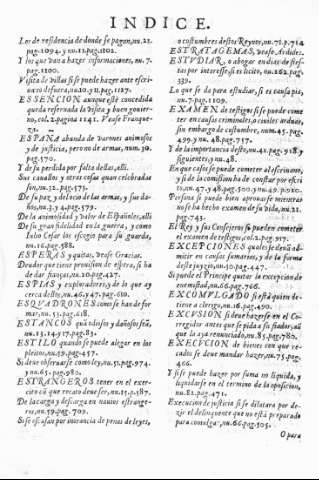 INDICE.
Los de residencia de donde se pagan, nu. 21.
pag. 1094. y nu. 12. pag. 1102.
Y los que van a hazer informaciones, nu. 7.
pag. 1100.
Visita de villas si se puede hazer ante escri-
uano de fuera, nu. 10. y 11. pag. 1127.
ESSENCION aunque esté concedida
queda reseruada la visita y buen gouier-
no, col. 2. pagina 1141. Vease Franque-
za.
ESPAÑA abunda de varones animosos
y de justicia, pero no de armas, num. 30.
pag. 570.
Y de su perdida por falta dellas, alli.
Sus cauallos y otras cosas quan celebradas
son, nu. 32. pag. 573.
De su paz y desuelo de las armas, y sus da-
ños, nu. 3. y 4. pag. 579.
De la animosidad y valor de Españoles, alli
De su gran fidelidad en la guerra, y como
Iulio Cesar los escogia para su guarda,
nu. 16. pag. 588.
ESPERAS y quitas, vease Gracias.
Deudor que tiene prouision de espera, si ha
de dar fianças, nu. 20. pag. 427.
ESPIAS y exploradores, y de lo que ay
cerca desto, nu. 46. y 47. pag. 610.
ESQVADRONES como se han de for
mar, nu. 53. pag. 618.
ESTANCOS quales los y dañosos son,
nu. 13. 14. y 17. pag. 83.
ESTILO quando se puede alegar en los
pleitos, nu. 59. pag. 457.
Si deue obseruarse como ley, nu. 51. pag. 974.
y nu. 65. pag. 980.
ESTRANGEROS tener en el exer-
cicio en que recato deue ser, nu. 15. p. 587.
De la carga y descarga en nauios estrange-
ros, nu. 59. pag. 709.
Si se escusas por inorancia de penas de leyes,
o costumbres destos Reynos, nu. 71. p. 714
ESTRATAGEMAS, vease Ardides.
ESTVDIAR, o abogar en dias de fies-
tas por interesse, si es licito, nu. 162. pag.
339.
Lo que se da para estudiar, si es causa pia,
nu. 7. pag. 1109.
EXAMEN de testigos si se puede come
ter en causas criminales, o ciuiles arduas,
sin embargo de costumbre, num. 45. pag.
499. y nu. 48. pag. 757.
Y de la importancia desto, nu. 42. pag. 918. y
siguientes, y nu. 48.
En que casos se puede cometer al escriuano,
y si de la comission ha de constar por escri
to, nu. 47. y 48. pag. 500. y nu. 49. p. 920.
Persona si puede bien aprouarse mientras
no se ha hecho examen de su vida, nu. 21.
pag. 743.
El Rey y sus Consejeros su pueden cometer
el examen de testigos, col. 2. pag. 917.
EXCEPCIONES quales se deuẽ ad-
mitir en causas sumarias, y de la forma
deste juyzio, nu. 30. pag. 447.
Si puede el Principe quitar la excepcion de
enemistad, nu. 66. pag. 766.
EXCOMVLGADO si està quien de-
tiene a clerigo, nu. 16. pag. 450.
EXCVSION si deue hazerse en el Co-
rregidor antes que se pida a su fiador, aũ
que la aya renunciado, nu. 85. pag. 780.
EXECVCION de bienes con que re-
cados se deue mandar hazer, nu. 75. pag.
466.
Y si se puede hazer por suma no liquida, y
liquidarse en el termino de la oposicion,
nu. 82. pag. 471.
Execucion de justicia si se dilatara por de-
zir el delinquente que no està preparado
para comulgar, nu. 66. pag. 305.
O para